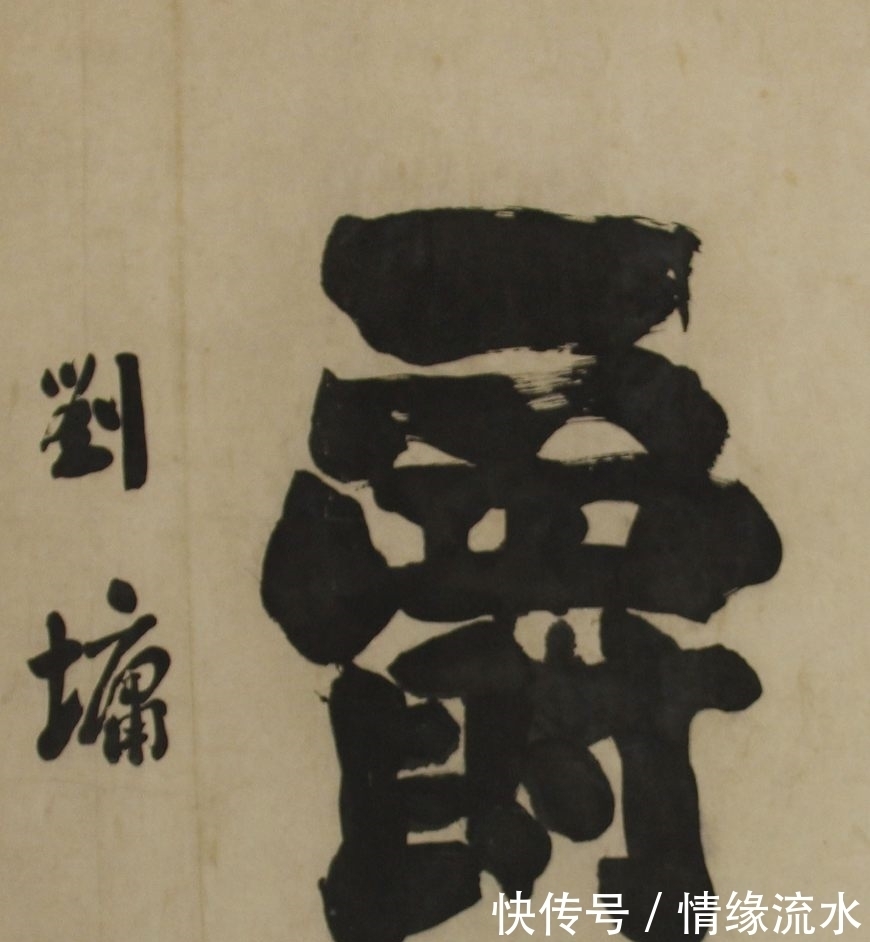 爵
劉墉
快传号 / 情缘流水